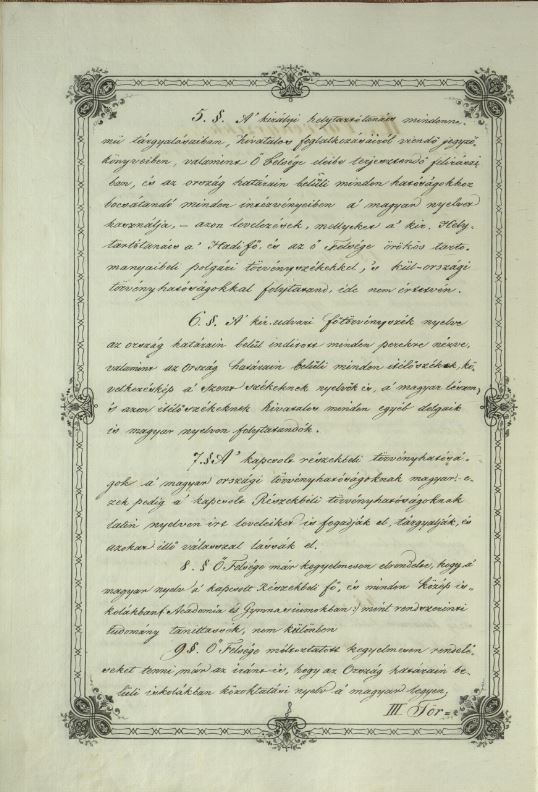 5. §. A' királyi helytartótanács mindenne-
mü tárgyalásaiban, hivatalos foglalkozásairól viendő jegyző
könyveiben, valamint Ő Felsége eleibe terjesztendő felirásai
ban, és az ország határain belűli minden hatóságokhoz
bocsátandó minden intézvényeiben a' magyar nyelvet
használja, – azon levelezések, mellyeket a' kir. Hely-
tartótanács a' Hadi fő és az ő Felsége örökös tarto-
mányaibeli polgári törvényszékekkel, 's kül-országi
törvényhatóságokkal folytatand, ide nem értetvén.
6. §. A' kir. udvari főtörvényszék nyelve
az ország határain belűl inditott minden perekre nézve,
valamint az ország határain belűli minden itélőszékek, kö-
vetkezésképp a' Szent székeknek nyelvök is, a' magyar lészen,
's azon itélőszékeknek hivatalos minden egyéb dolgaik
is magyar nyelven folytatandók.
7. § A' kapcsolt részekbeli törvényhatósá-
gok a' magyar országi törvényhatóságoknak magyar, e-
zek pedig a' kapcsolt Részekbeli törvényhatóságoknak
latin nyelven irt leveleiket is fogadják el, tárgyalják, és
azokat illő válasszal lássák el.
8. § Ő Felsége már kegyelmesen elrendelte, hogy a'
magyar nyelv a' kapcsolt Részekbeli fő, és minden közép is-
kolákban /: Academia és Gymnasiumokban :/ mint rendszerinti
tudomány tanittassék, nem különben
9 §. Ő Felsége méltóztatott kegyelmesen rendelé-
seket tenni már az iránt is, hogy az Ország határain be-
lűli iskolákban közoktatási nyelv a' magyar legyen,
III Tör=